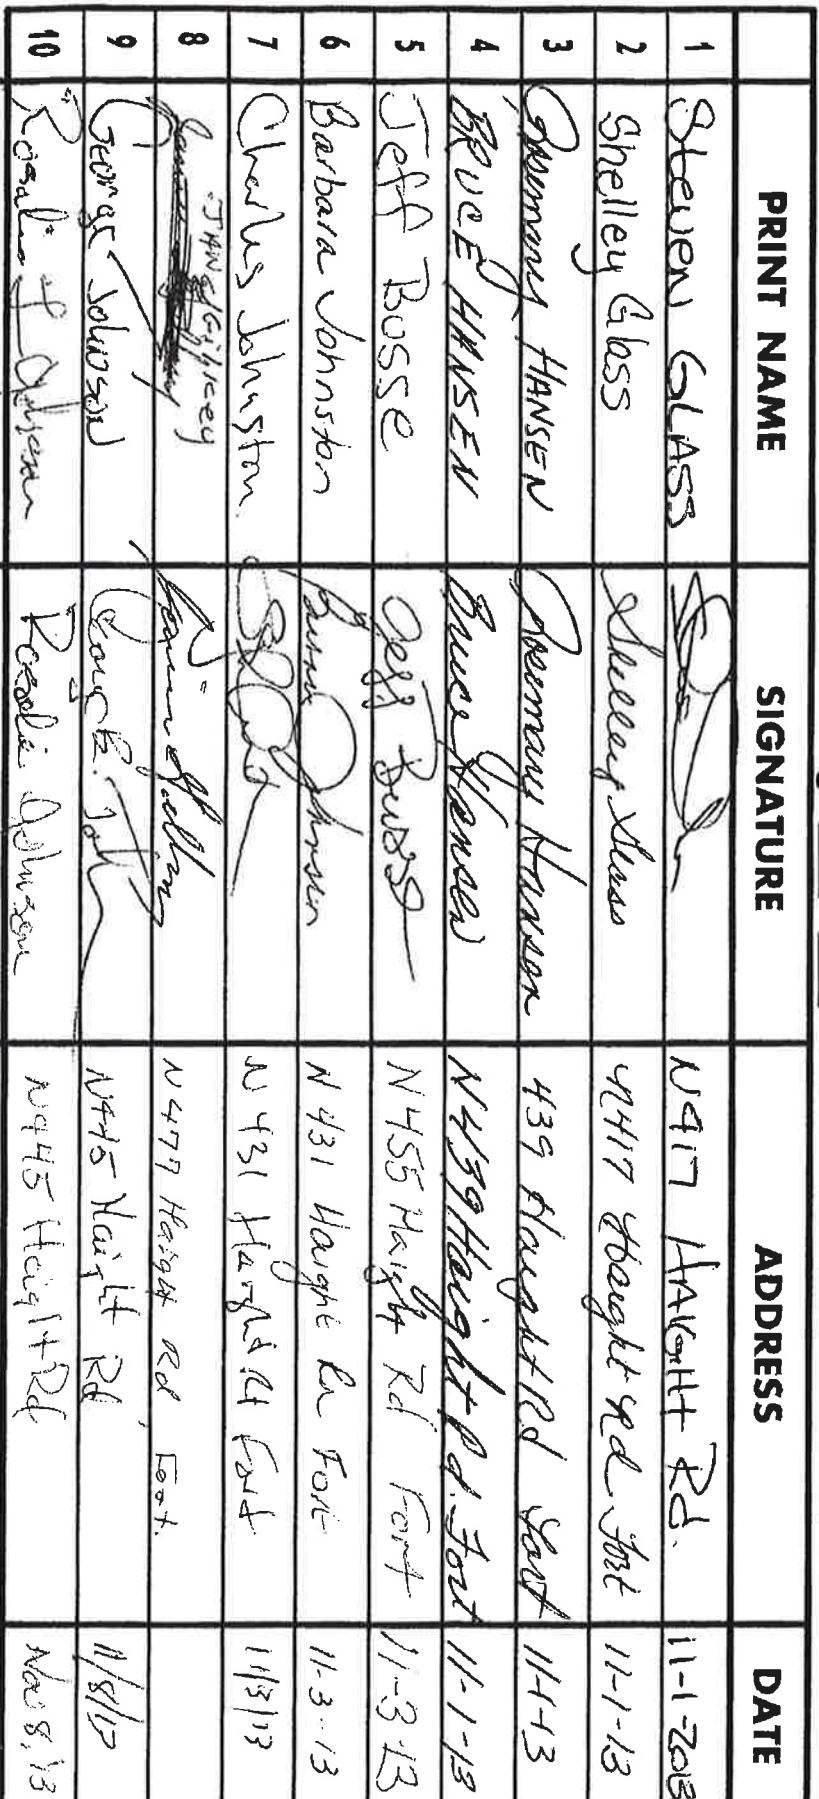 PRINT NAME SIGNATURE ADDRESS DATE
1 Steven GLASS N417 HAIGHT Rd. 11-1-2013
2 Shelley Glass Shelley Glass N417 Haight Rd Fort 11-1-13
3 Rosemary HANSEN Rosemary Hansen 439 Haight Rd Fort 11-1-13
4 BRUCE HANSEN Bruce Hansen N439 Haight Rd. Fort 11-1-13
5 Jeff Busse Jeff Busse N455 Haight Rd Fort 11-3-13
6 Barbara Johnston N431 Haight Rd Fort 11-3-13
7 Charles Johnston N431 Haight Rd Fort 11/3/13
8 N477 Haight Rd Foot.
9 George Johnson N445 Haight Rd 11/8/13
10 Rosalie Johnson Rosalie Johnson N445 Haight Rd Nov 8, 13